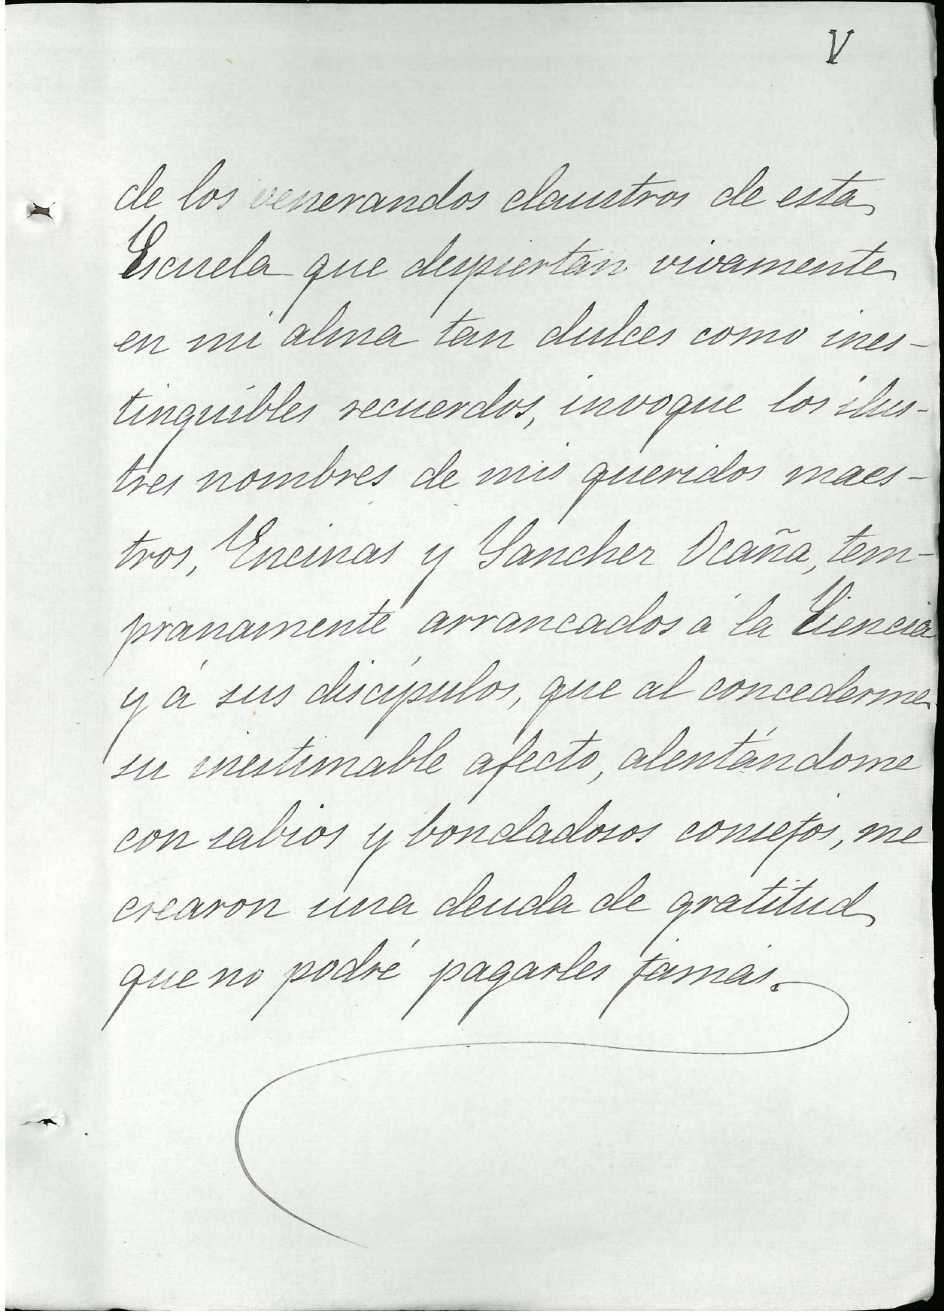 V
de los venerandos claustros de esta
Escuela que despiertan vivamente
en mi alma tan dulces como ines-
tinguibles recuerdos, invoque los ilus-
tres nombres de mis queridos maes-
tros, Encinas y Sanchez Ocaña, tem-
pranamente arrancados á la Ciencia
y á sus discípulos, que al concederme
su inestimable afecto, alentándome
con sabios y bondadosos consejos, me
crearon una deuda de gratitud
que no podré pagarles jamás.